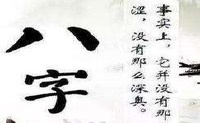 八字
事实上，它并没有那么深奥。
涩，没有那么深奥。